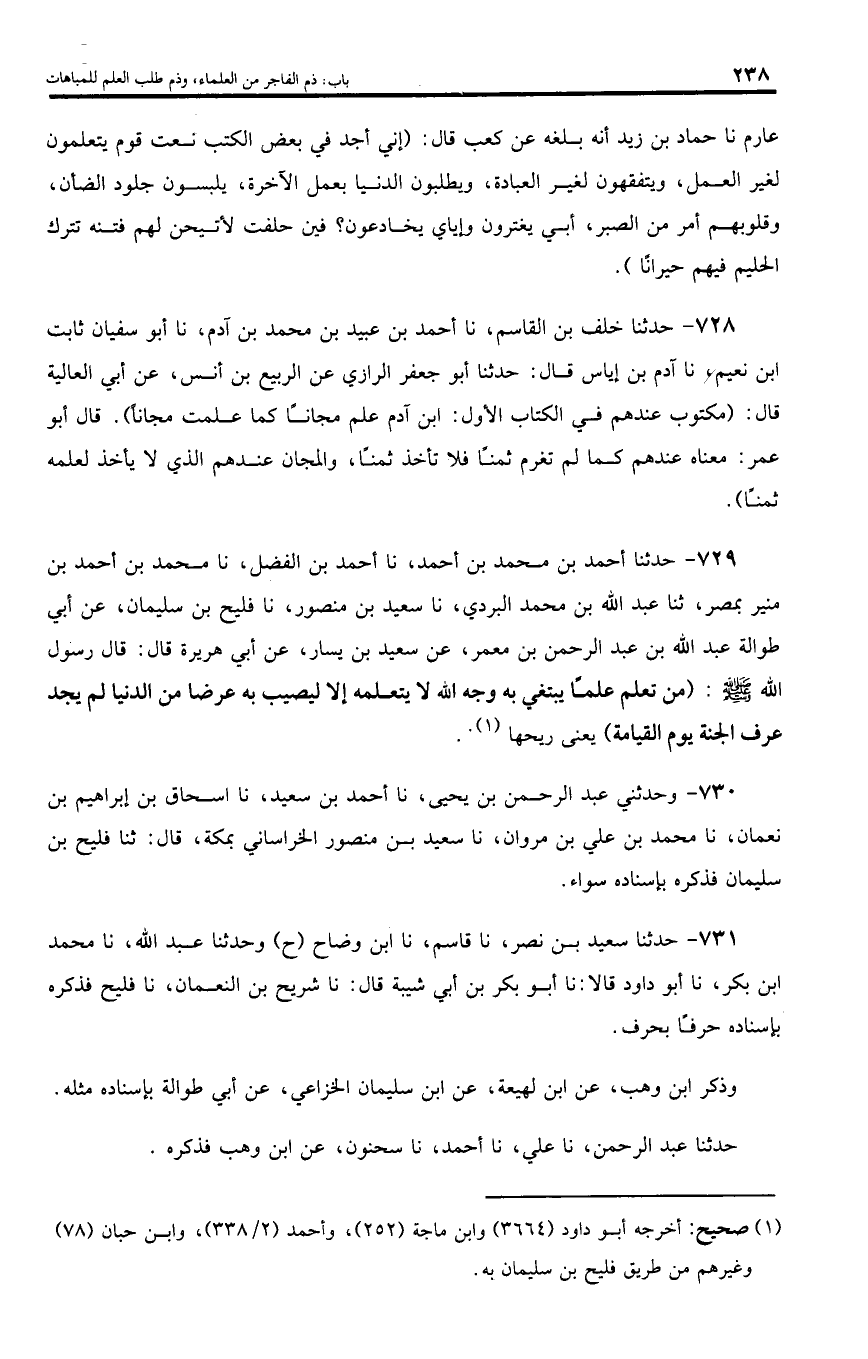 ٢٣٨
باب: ذم الفاجر من العلماء، وذم طلب العلم للمباهات
عارم نا حماد بن زيد أنه بلغه عن كعب قال: (إني أجد في بعض الكتب نعت قوم يتعلمون
لغير العمل، ويتفقهون لغير العبادة، ويطلبون الدنيا بعمل الآخرة، يلبسون جلود الضأن،
وقلوبهم أمر من الصبر، أبي يغترون وإياي يخادعون؟ فبن حلفت لأتيحن لهم فتنه تترك
الحليم فيهم حيرانًا ).
٧٢٨- حدثنا خلف بن القاسم، نا أحمد بن عبيد بن محمد بن آدم، نا أبو سفيان ثابت
ابن نعيم، نا آدم بن إياس قال: حدثنا أبو جعفر الرازي عن الربيع بن أنس، عن أبي العالية
قال: (مكتوب عندهم في الكتاب الأول: ابن آدم علم مجانًا كما علمت مجاناً). قال أبو
عمر: معناه عندهم كما لم تغرم ثمنًا فلا تأخذ ثمنًا، والمجان عندهم الذي لا يأخذ لعلمه
ثمنًا).
٧٢٩- حدثنا أحمد بن محمد بن أحمد، نا أحمد بن الفضل، نا محمد بن أحمد بن
منير بمصر، ثنا عبد الله بن محمد البردي، نا سعيد بن منصور، نا فليح بن سليمان، عن أبي
طوالة عبد الله بن عبد الرحمن بن معمر، عن سعيد بن يسار، عن أبي هريرة قال: قال رسول
الله ﷺ : (من تعلم علمًا يبتغي به وجه الله لا يتعلمه إلا ليصيب به عرضا من الدنيا لم يجد
عرف الجنة يوم القيامة) يعنى ريحها (١). .
٧٣٠- وحدثني عبد الرحمن بن يحيى، نا أحمد بن سعيد، نا اسحاق بن إبراهيم بن
نعمان، نا محمد بن علي بن مروان، نا سعيد بن منصور الخراساني بمكة، قال: ثنا فليح بن
سليمان فذكره بإسناده سواء.
٧٣١- حدثنا سعيد بن نصر، نا قاسم، نا ابن وضاح (ح) وحدثنا عبد الله، نا محمد
ابن بكر، نا أبو داود قالا:نا أبو بكر بن أبي شيبة قال: نا شريح بن النعمان، نا فليح فذكره
بإسناده حرفًا بحرف.
وذكر ابن وهب، عن ابن لهيعة، عن ابن سليمان الخزاعي، عن أبي طوالة بإسناده مثله.
حدثنا عبد الرحمن، نا علي، نا أحمد، نا سحنون، عن ابن وهب فذكره .
(١) صحيح: أخرجه أبو داود (٣٦٦٤) وابن ماجة (٢٥٢)، وأحمد (٣٣٨/٢)، وابن حبان (٧٨)
وغيرهم من طريق فليح بن سليمان به.